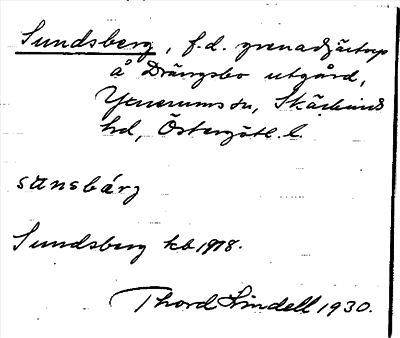 Sundsberg, f.d. grenadjärtorp
å Drängsbo utgård,
Yxnerums sn, Skärkinds
hd, Östergötl. l.
sɯnsbárj
Sundsberg kb 1918.
Thord Lindell 1930.